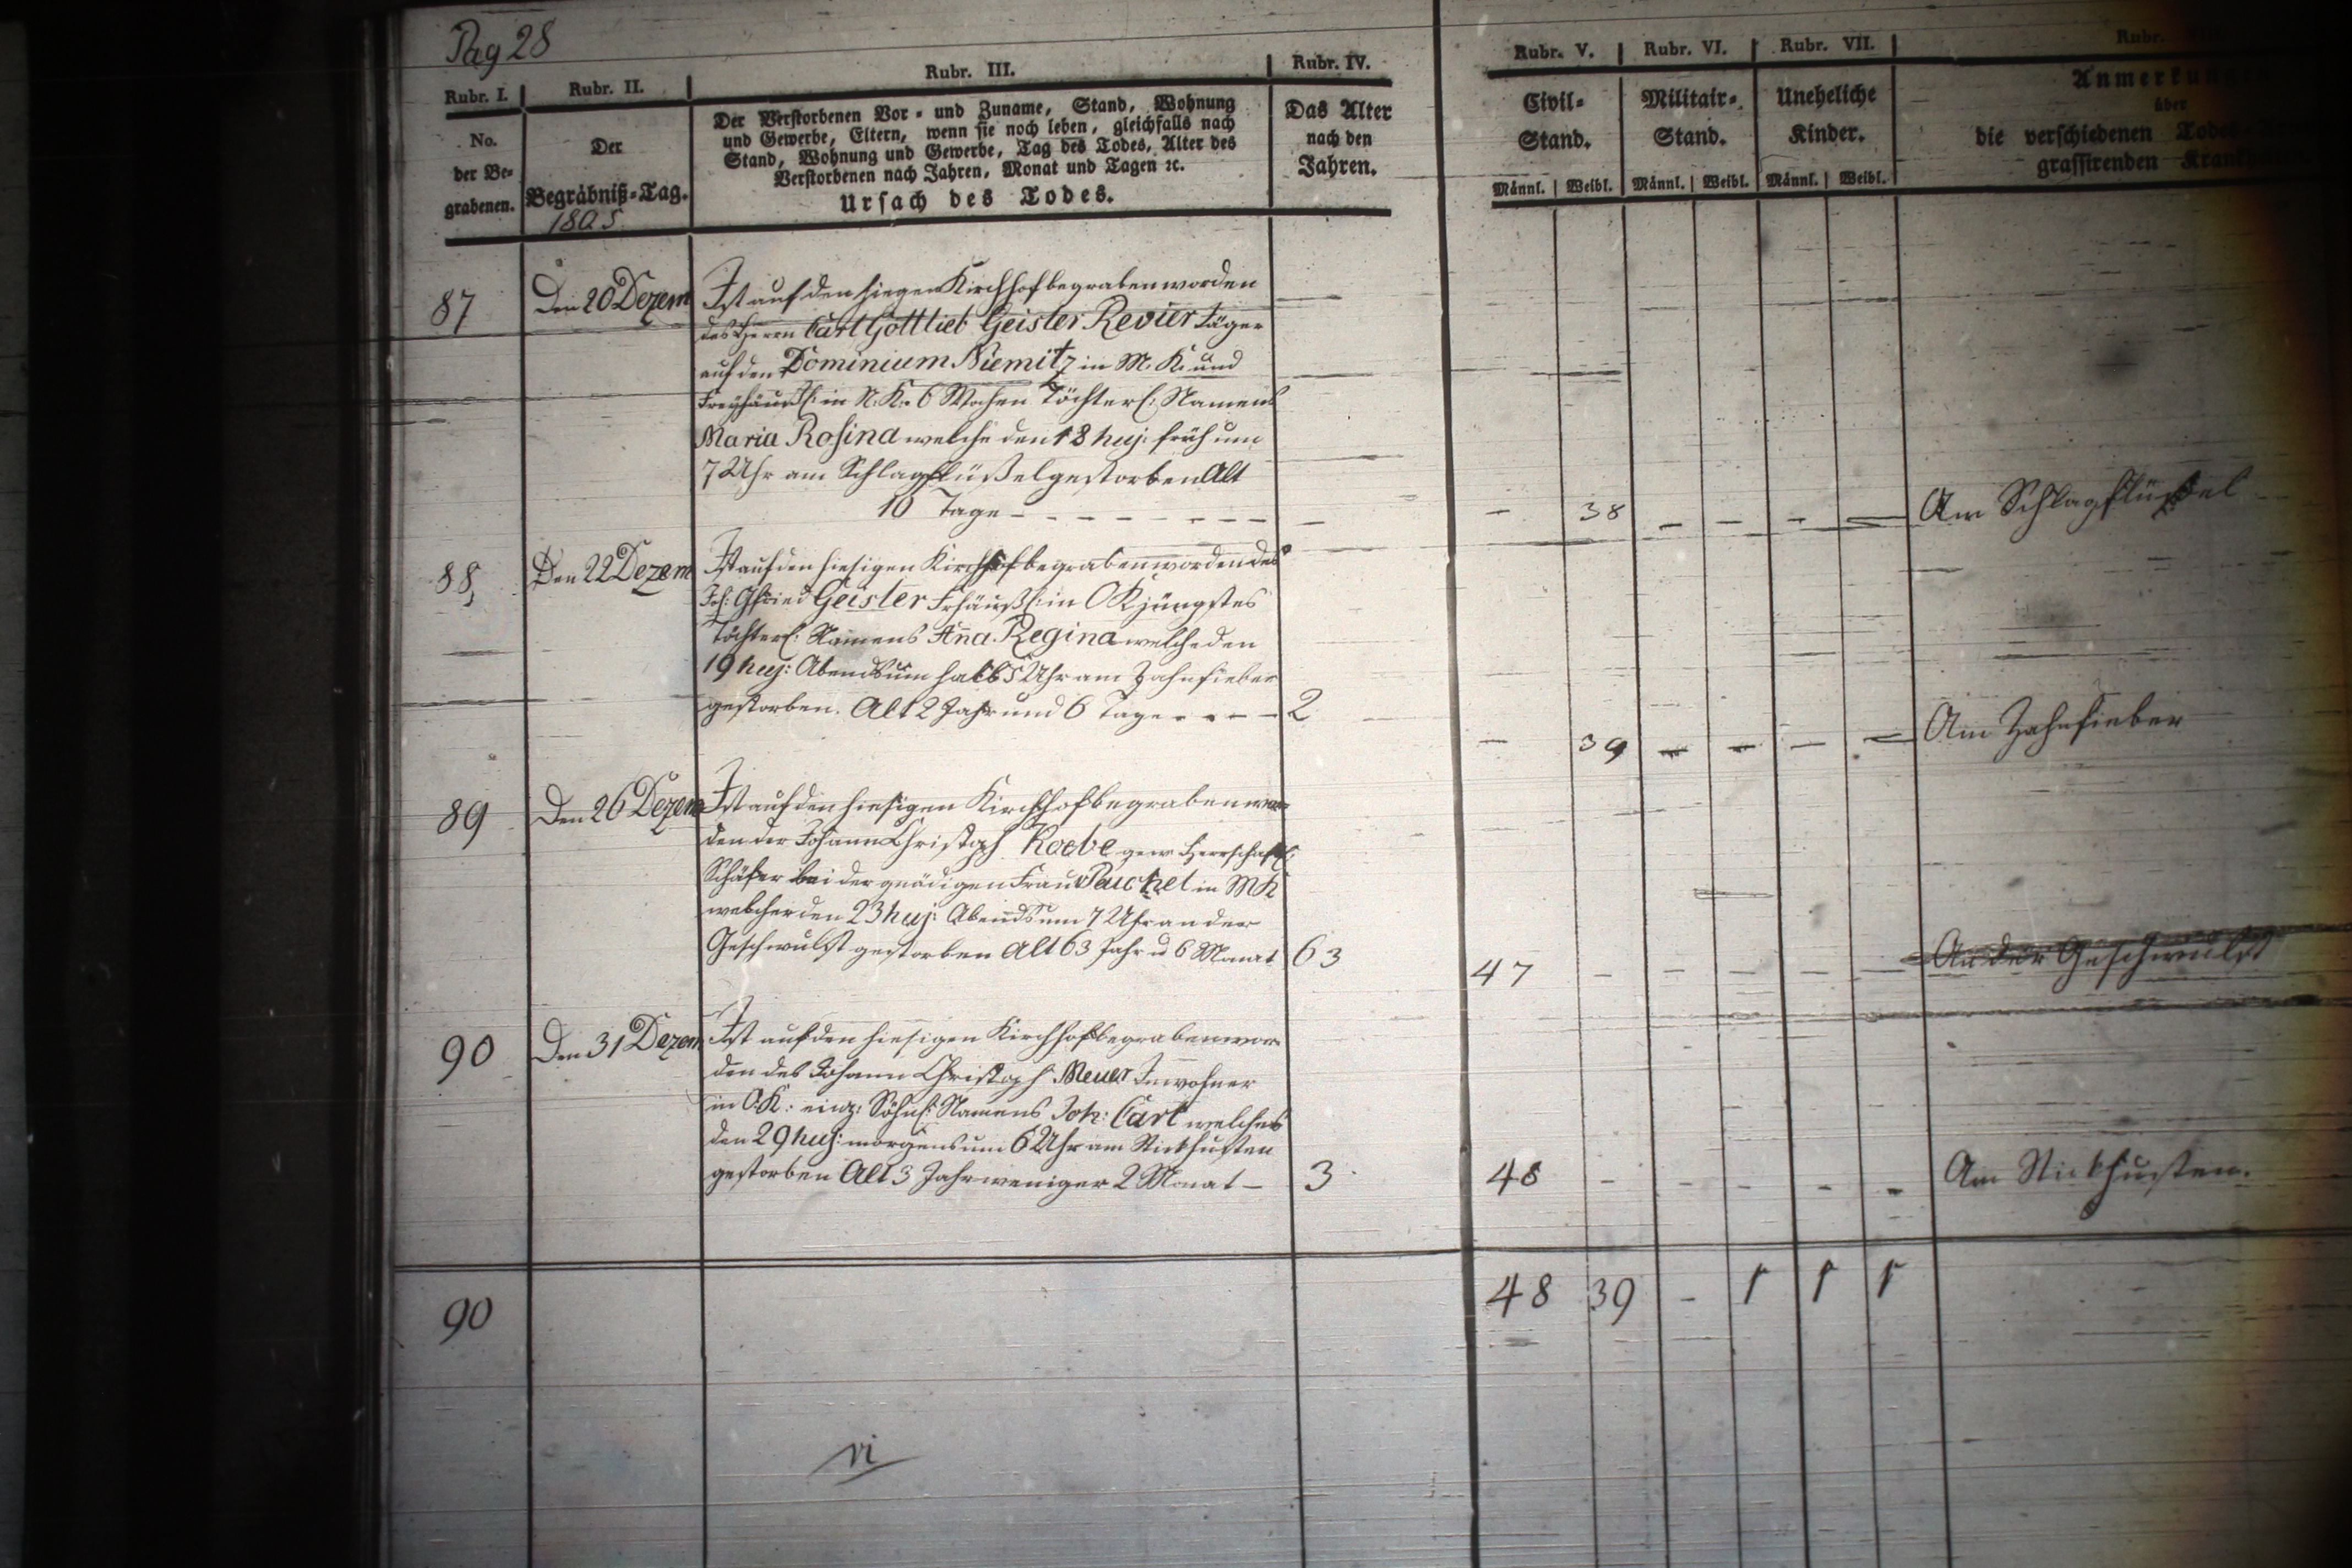 Pag 28
Rubr. I. Rubr. II. Rubr. III. Rubr. IV. Rubr. V. Rubr. VI. Rubr. VII. Rubr.
No.
der Be-
grabenen.
Der
Begräbniß-Tag.
1805
Der Verstorbenen Vor- und Zuname, Stand, Wohnung
und Gewerbe, Eltern, wenn sie noch leben, gleichfalls nach
Stand, Wohnung und Gewerbe, Tag des Todes, Alter des
Verstorbenen nach Jahren, Monat und Tagen ꝛc.
Ursach des Todes.
Das Alter
nach den
Jahren.
Civil-
Stand.
Männl. Weibl.
Militair-
Stand.
Männl. Weibl.
Uneheliche
Kinder.
Männl. Weibl.
Anmerkungen
über
die verschiedenen Todes-
grassirenden Krankheiten
87 Den 20 Dezem Ist auf den hiegen Kirchhof begraben worden
des Herrn Carl Gottlieb Geisler Revier Jäger
auf den Dominium Niemitz in M. K. und
Freyhäusl: in N. K. 6 Wochen Töchterl: Namens
Maria Rosina welche den 18 huj: früh um
7 Uhr am Schlagflüßel gestorben Alt
10 Tage - - - - - - - - - 38 - - - - Am Schlagflüßel
88, Den 22 Dezem Ist auf den hiesigen Kirchhof begraben worden des
Joh: Gfried Geisler Frhäußl: in OK jüngstes
Töchterl: Namens Aña Regina welche den
19 huj: Abends um halb 5 Uhr am Zahnfieber
gestorben. Alt 2 Jahr und 6 Tage - - - - 2 - 39 - - - - Am Zahnfieber
89 Den 26 Dezem Ist auf den hiesigen Kirchhof begraben wor-
den der Johann Christoph Koebe gew. Herrschaftl:
Schäfer bei der gnädigen Frau v Peuckel in MK
welcher den 23 huj: Abends um 7 Uhr an der
Geschwulst gestorben Alt 63 Jahr u 6 Monat 63 47 - - - - - An der Geschwulst
90 Den 31 Dezem Ist auf den hiesigen Kirchhof begraben wor-
den des Johann Christoph Meuer Inwohner
in O.K: einz: Söhnl: Namens Joh: Carl welches
den 29 huj: morgens um 6 Uhr am Stickhusten
gestorben Alt 3 Jahr weniger 2 Monat - 3 48 - - - - - Am Stickhusten.
90 48 39 - 1 1 1
vi